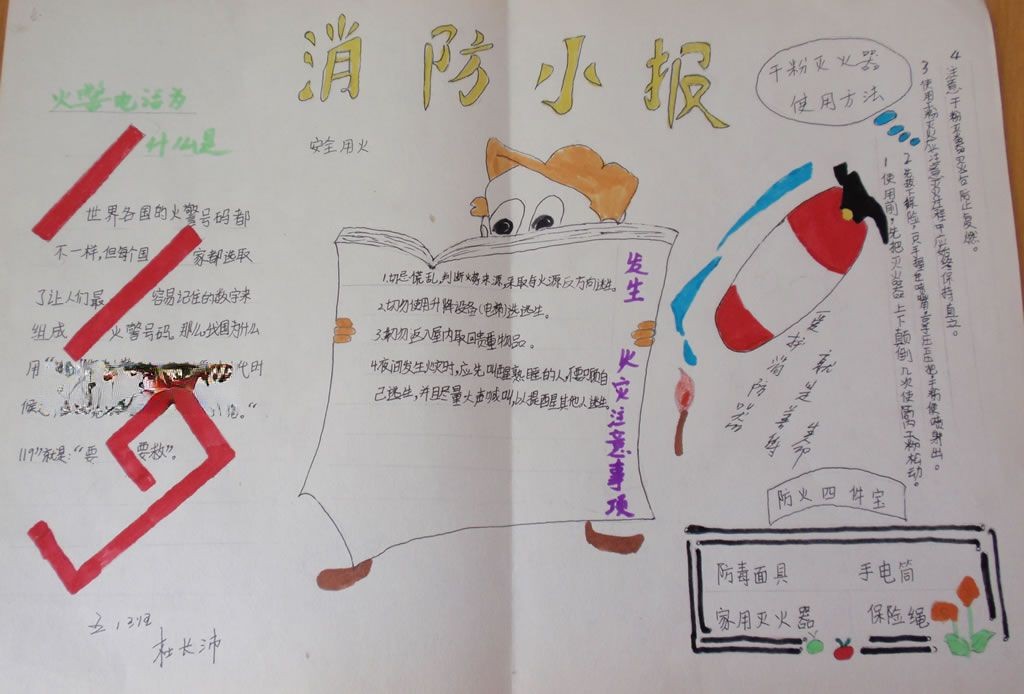 消防小报
火警电话为
什么是
119
世界各国的火警号码都
不一样,但每个国家都选取
了让人们最容易记住的数字来
组成火警号码。那么我国为什么
用“
代时
候
119”就是:“要要救”。
五,3班
杜长沛
安全用火
发生火灾注意事项
1.切忌慌乱,判断火势来源,采取与火源反方向逃生。
2.切勿使用升降设备(电梯)逃生。
3.切勿返入屋内取回贵重物品。
4.夜间发生火灾时,应先叫醒熟睡的人,不要只顾自
己逃生,并且尽量大声喊叫,以提醒其他人逃生
干粉灭火器
使用方法
1 使用前,先把灭火器上下颠倒几次使筒内干粉松动。
2
3 使用干粉灭火应注意灭火过程中应始终保持直立。
4 注意干粉灭器灭火后防止复燃。
爱护消防器
就是善待生命
防火四件宝
防毒面具 手电筒
家用灭火器 保险绳